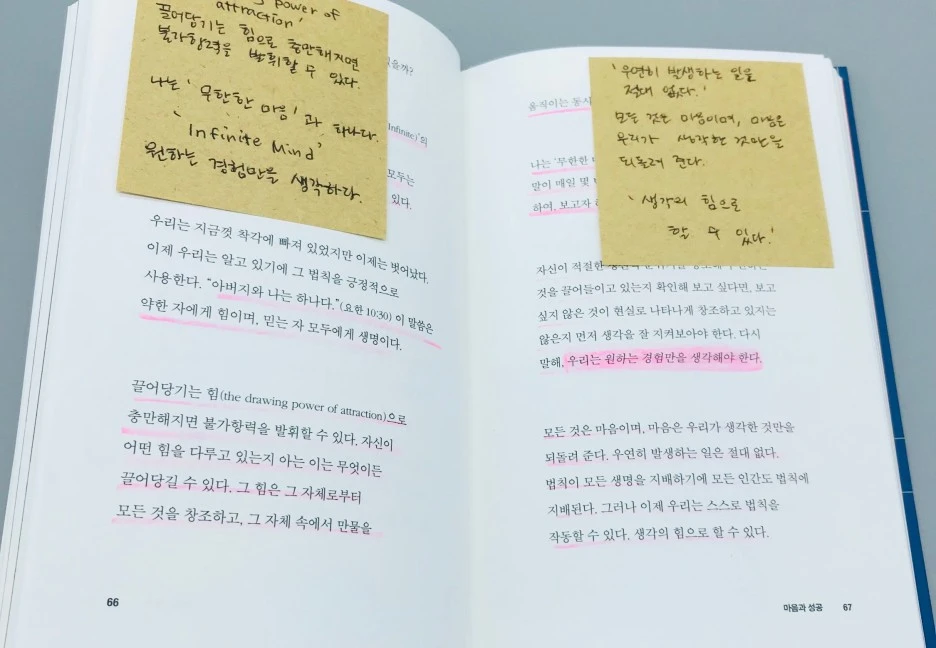 power of
attraction'
끌어당기는 힘으로 충만해지면
불가항력을 발휘할 수 있다.
나는 '무한한 마음'과 하나다.
'Infinite Mind'
원하는 경험만을 생각하다.
있을까?
Infinite)'의
모두는
있다.
우리는 지금껏 착각에 빠져 있었지만 이제는 벗어났다.
이제 우리는 알고 있기에 그 법칙을 긍정적으로
사용한다. “아버지와 나는 하나다.”(요한 10:30) 이 말씀은
약한 자에게 힘이며, 믿는 자 모두에게 생명이다.
끌어당기는 힘(the drawing power of attraction)으로
충만해지면 불가항력을 발휘할 수 있다. 자신이
어떤 힘을 다루고 있는지 아는 이는 무엇이든
끌어당길 수 있다. 그 힘은 그 자체로부터
모든 것을 창조하고, 그 자체 속에서 만물을
66
'우연히 발생하는 일은
절대 없다.'
모든 것은 마음이며, 마음은
우리가 생각한 것만을
되돌려 준다.
'생각의 힘으로
할 수 있다.'
움직이는 동시
나는 '무한한
말이 매일 몇
하여, 보고자
자신이 적절한
것을 끌어들이고 있는지 확인해 보고 싶다면, 보고
싶지 않은 것이 현실로 나타나게 창조하고 있지는
않은지 먼저 생각을 잘 지켜보아야 한다. 다시
말해, 우리는 원하는 경험만을 생각해야 한다.
모든 것은 마음이며, 마음은 우리가 생각한 것만을
되돌려 준다. 우연히 발생하는 일은 절대 없다.
법칙이 모든 생명을 지배하기에 모든 인간도 법칙에
지배된다. 그러나 이제 우리는 스스로 법칙을
작동할 수 있다. 생각의 힘으로 할 수 있다.
마음과 성공 67